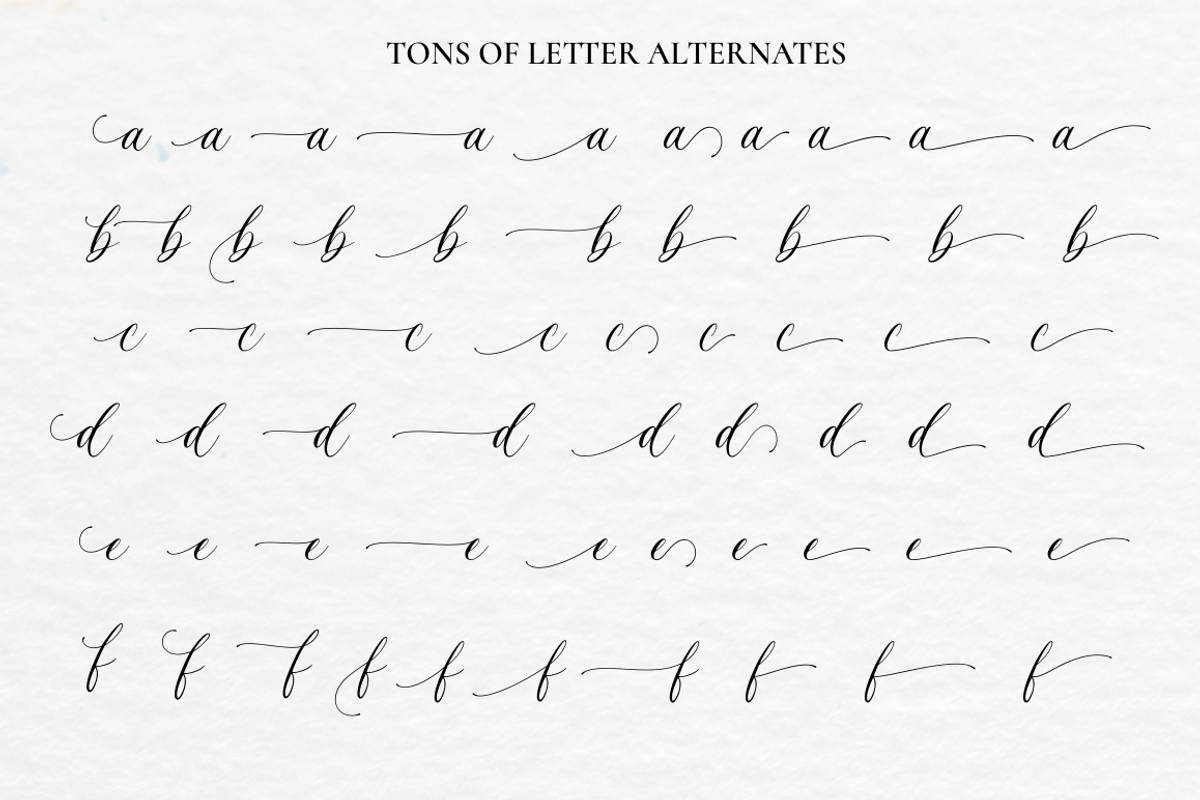 TONS OF LETTER ALTERNATES
a a a a a a a a a a
b b b b b b b b b b
c c c c c c c c c
d d d d d d d d d
e e e e e e e e e e
f f f f f f f f f f